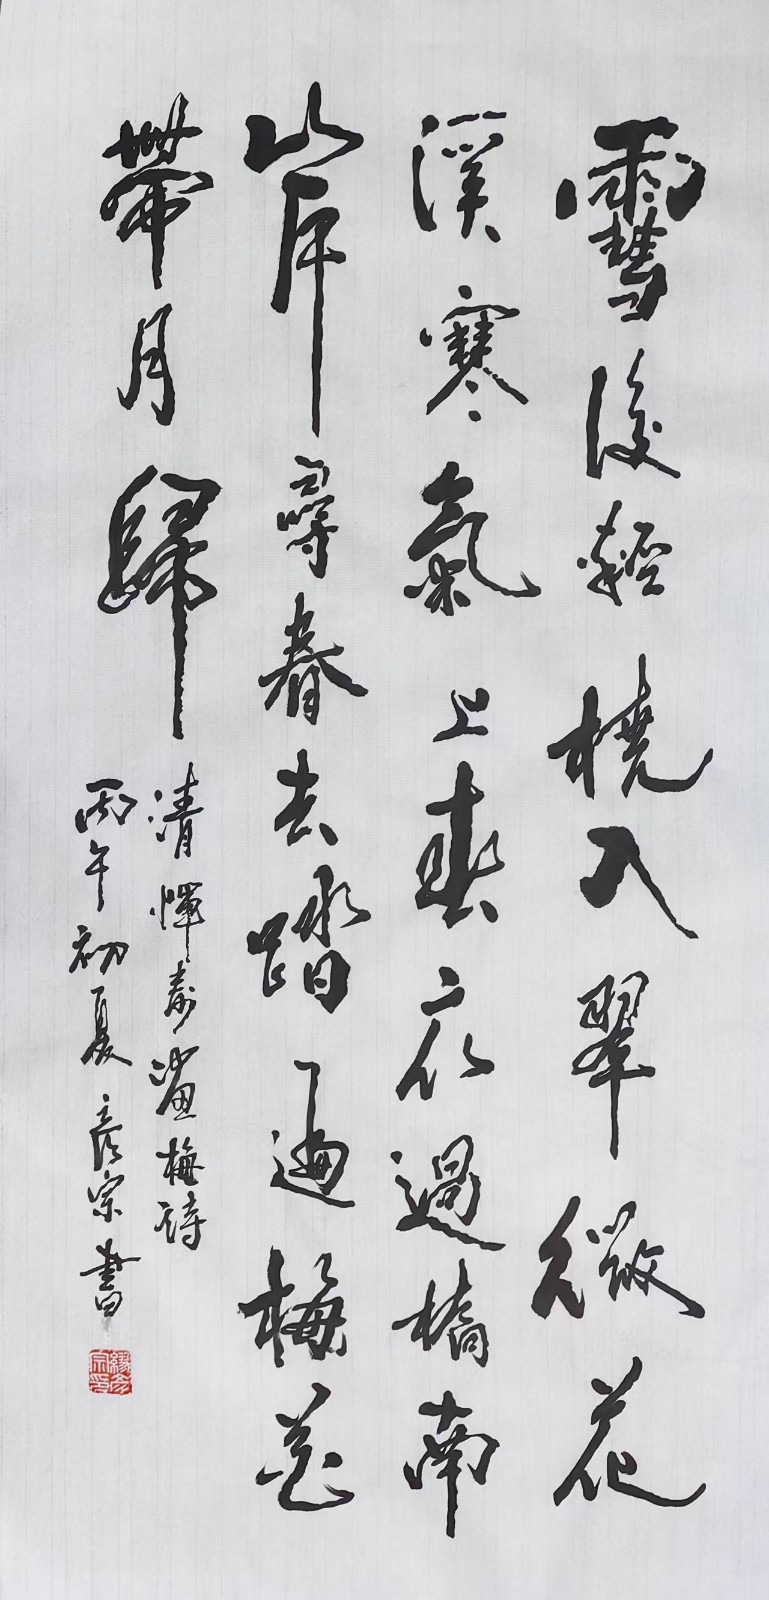 雪後輕橈入翠微花
溪寒氣上春衣過橋南
岸尋春去踏遍梅花
帶月歸
清惲壽
梅詩
丙午初夏彥宗書